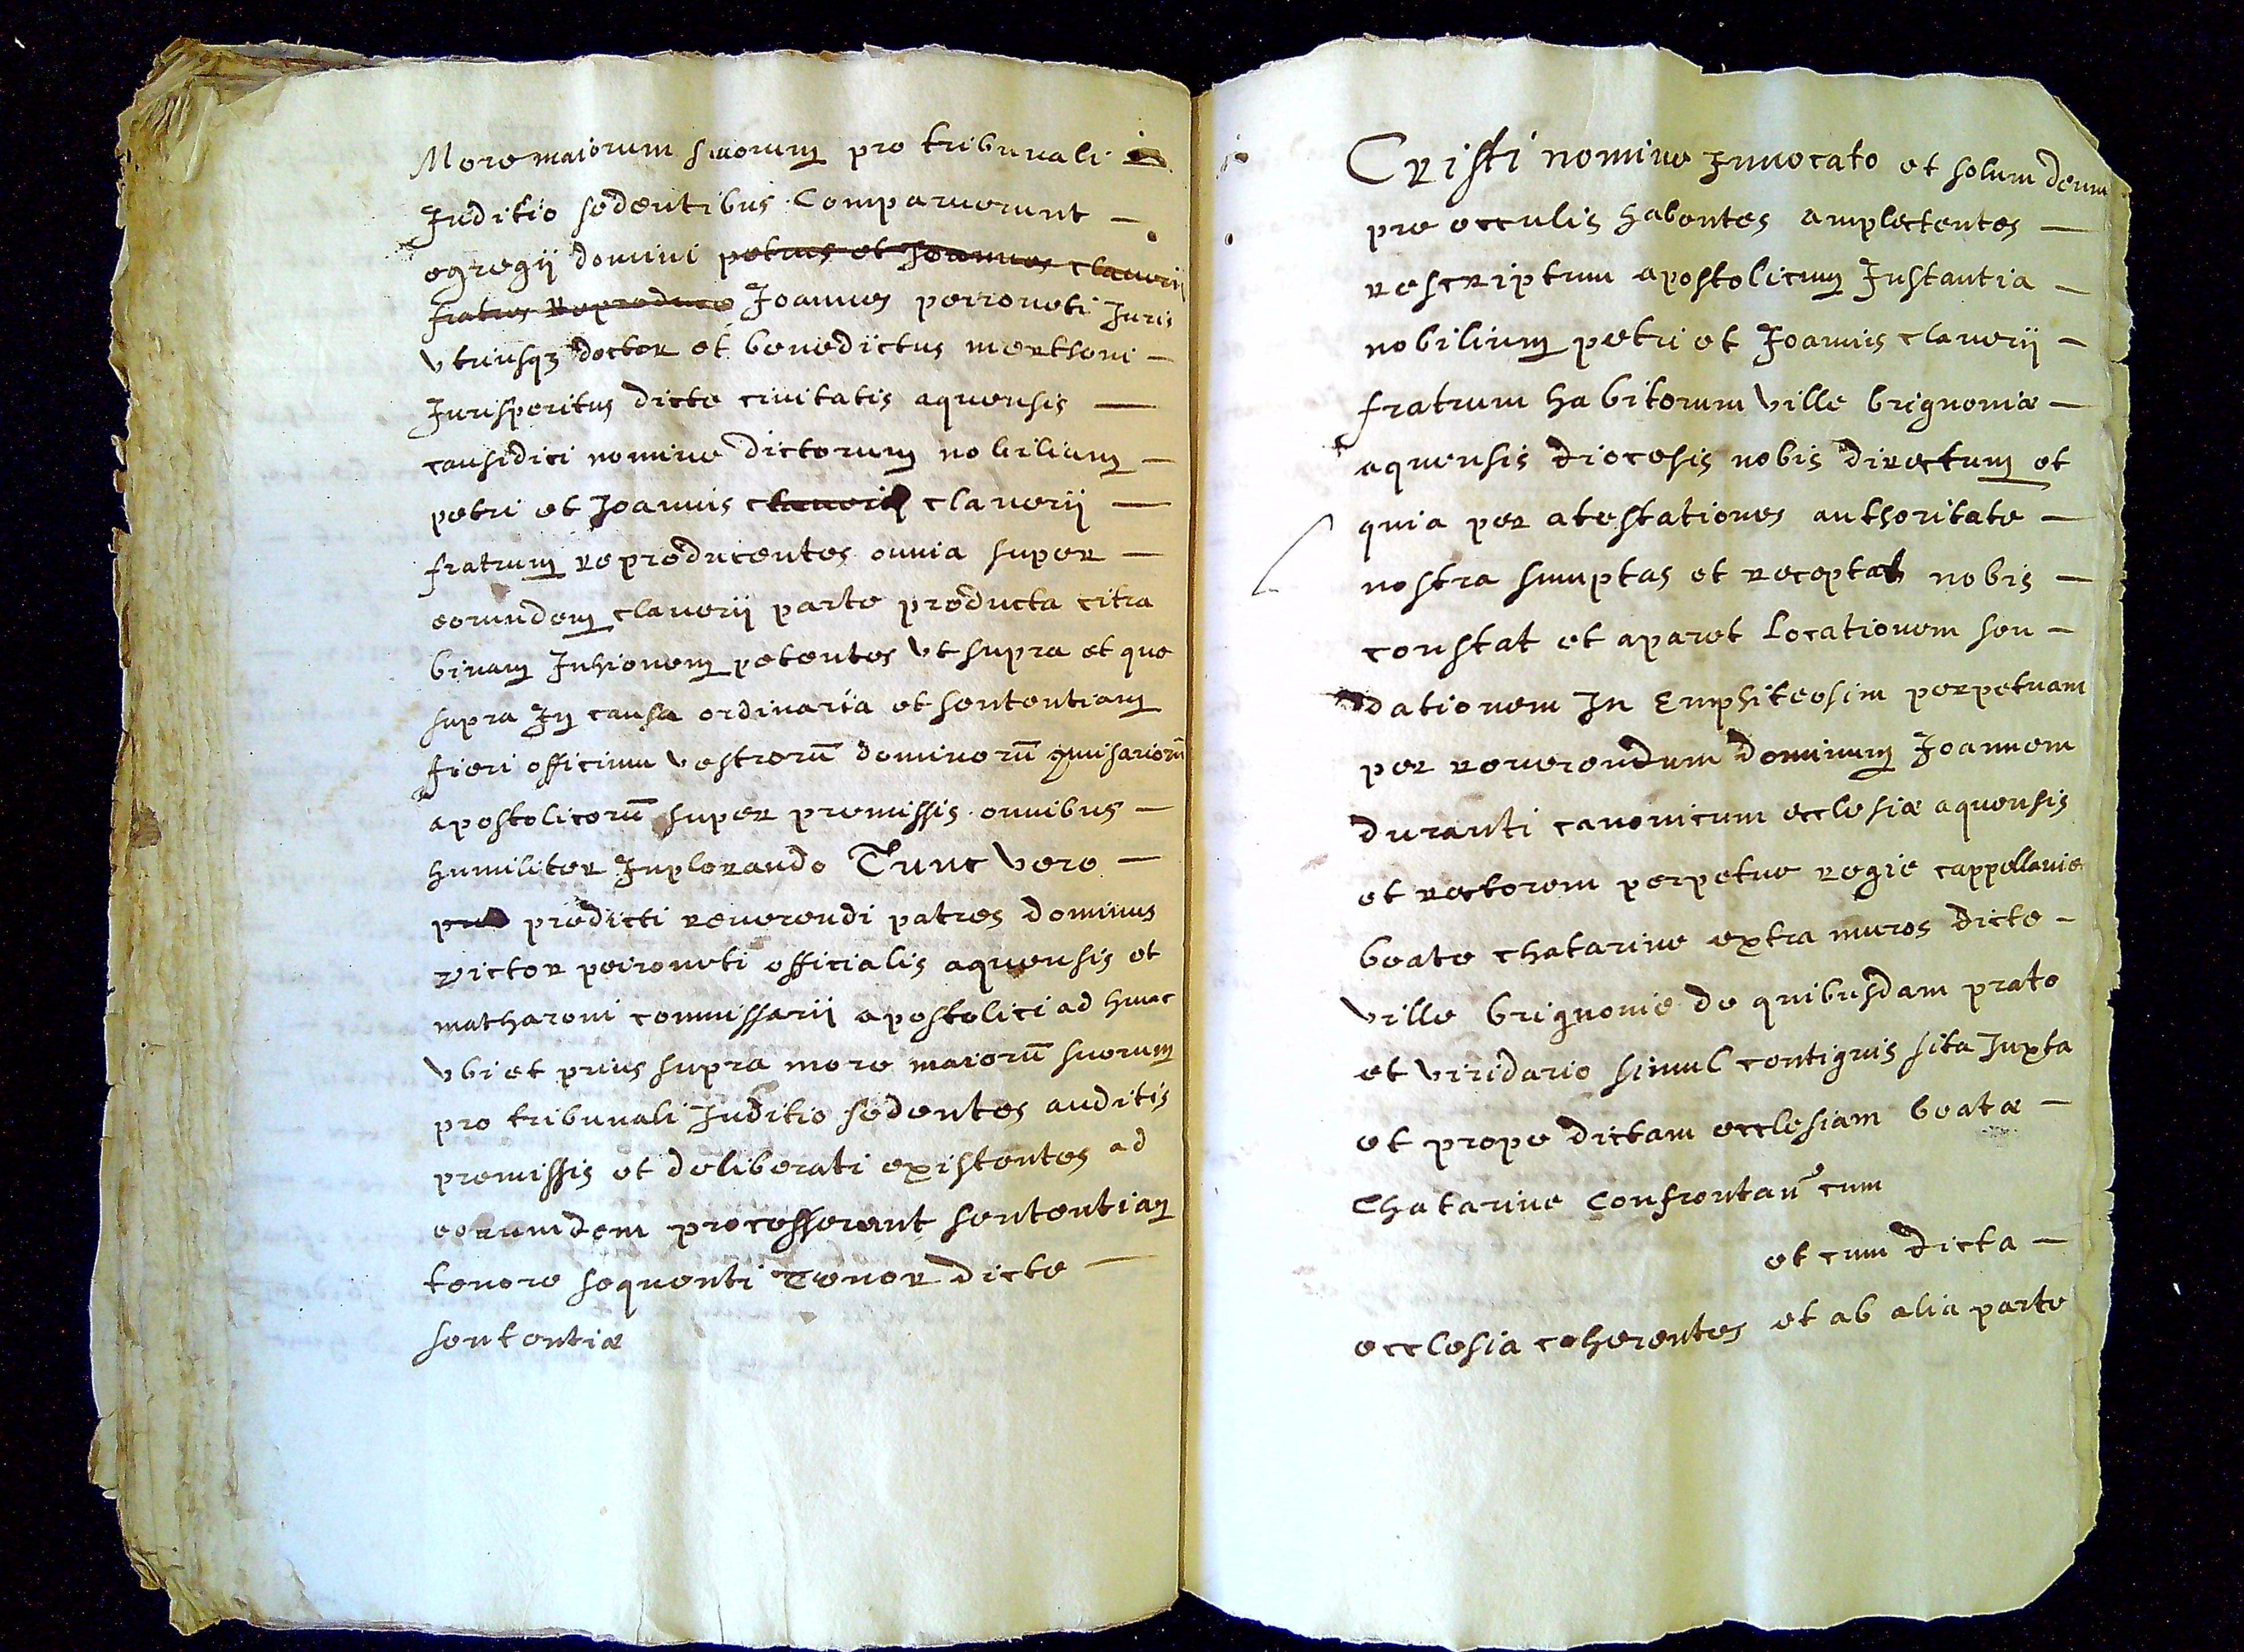 More maiorum suorum pro tribunali
Juditio sedentibus Comparuerunt —
egregij domini petrus et Joannes clauerii
fratres reproduce Joannes peironeti Juris
vtriusqz doctor et benedictus mertsoni —
Jurisperitus dicte ciuitatis aquensis —
causidici nomine dictorum nobilium —
petri et Joannis clauerii clauerij —
fratrum reproducentes omnia super —
eorundem clauerij parte producta citra
binam Juhionem petentes vt supra et que
supra In causa ordinaria et sententiam
fieri officium vestrorū dominorū
apostolicorū super premissis omnibus —
humiliter Inplorando Tunc vero —
predicti reuerendi patres dominus
victor peironeti officialis aquensis et
matharoni commissarij apostolici ad hunc
vbi et prius supra more maiorū suorum
pro tribunali Juditio sedentes auditis
premissis et deliberati existentes ad
eorumdem processerunt sententiam
tenore sequenti Tenor dicte —
sententiæ
Cristi nomine Jnuocato et solum deum
pre occulis habentes amplectentes —
rescriptum apostolicum Instantia —
nobilium petri et Joannis clauerij —
fratrum habitorum ville brignoniæ —
aquensis diocesis nobis directum et
quia per atestationes authoritate —
nostra sumptas et receptas nobis —
constat et aparet locationem seu —
dationem In Emphiteosim perpetuam
per reuerendum dominum Joannem
duranti canonicum ecclesiæ aquensis
et rectorem perpetue regie cappellanie
beate chatarine extra muros dicte —
ville brignonie de quibusdam prato
et viridario simul contiguis sita Juxta
et prope dictam ecclesiam beatæ —
Chatarine Confrontan̄ cum
et cum dicta —
ecclesia coherentes et ab alia parte